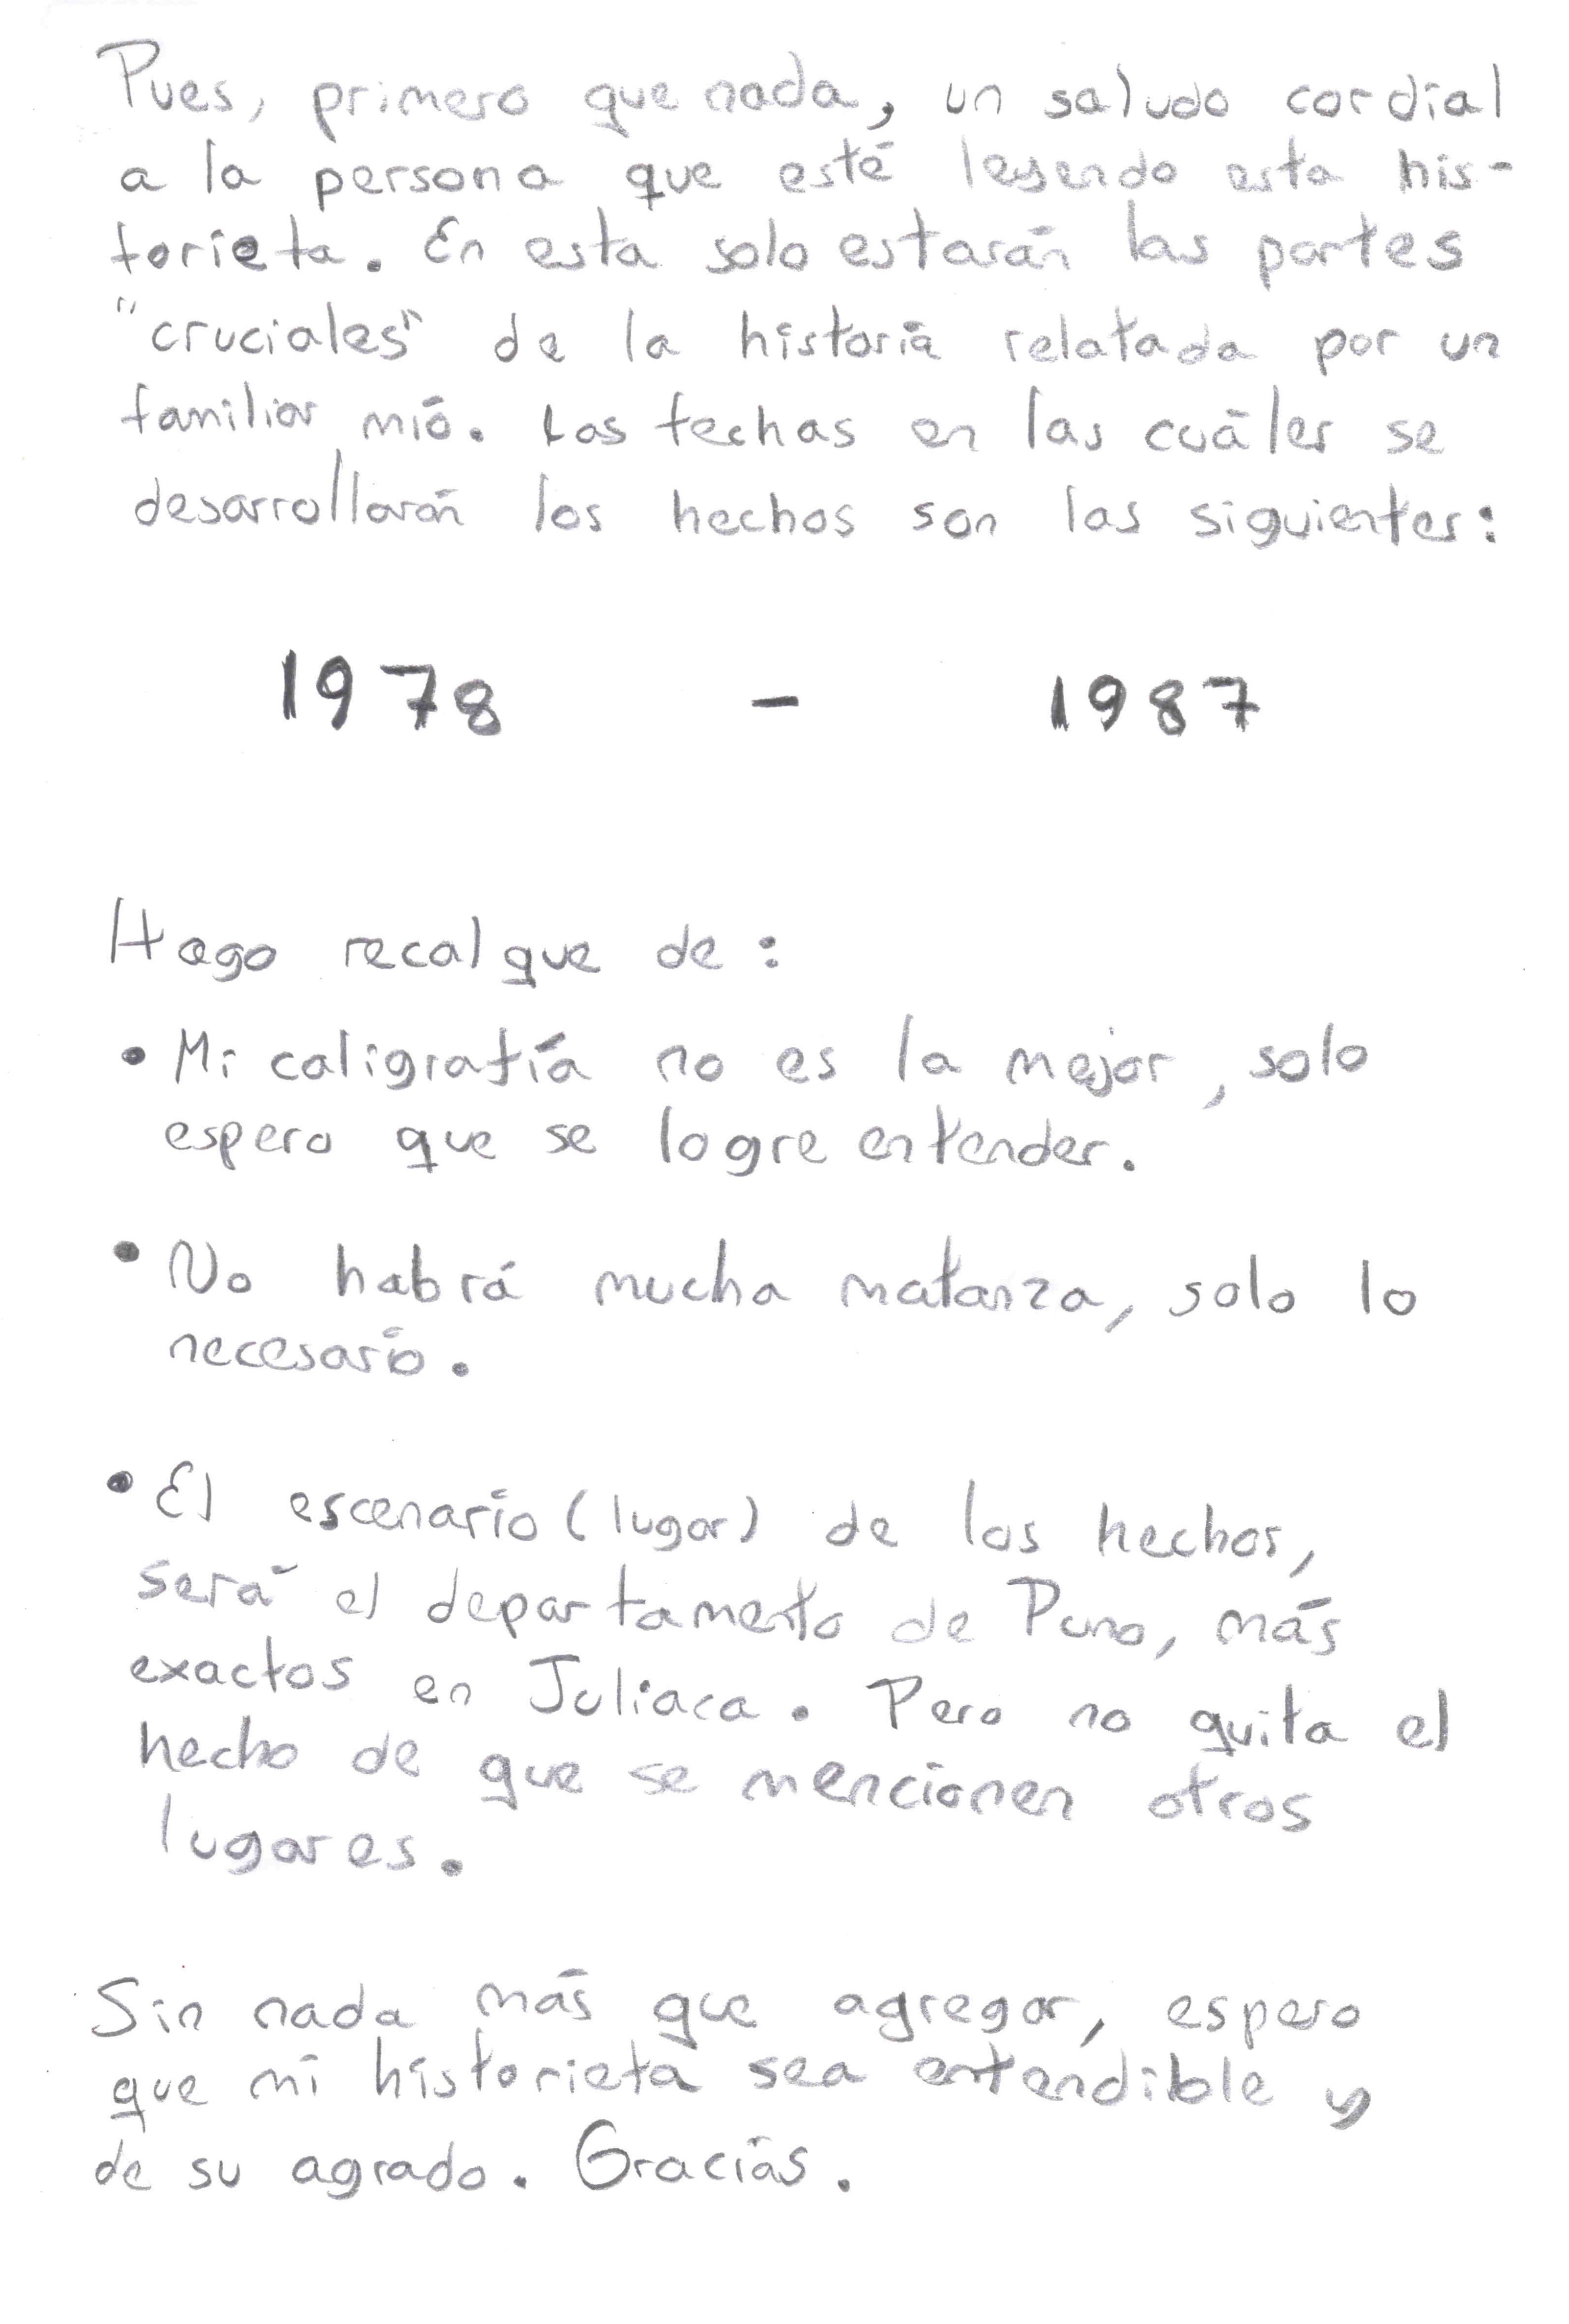 Pues, primero que nada, un saludo cordial
a la persona que esté leyendo esta his-
torieta. En esta solo estarán las partes
"cruciales" de la historia relatada por un
familiar mió. Las fechas en las cuáles se
desarrollarán los hechos son las siguientes:
1978 - 1987
Hago recalque de :
• Mi caligrafía no es la mejor, solo
espero que se logre entender.
• No habrá mucha matanza, solo lo
necesario.
• El escenario (lugar) de los hechos,
será el departamento de Puno, más
exactos en Juliaca. Pero no quita el
hecho de que se mencionen otros
lugares.
Sin nada más que agregar, espero
que mi historieta sea entendible y
de su agrado. Gracias.